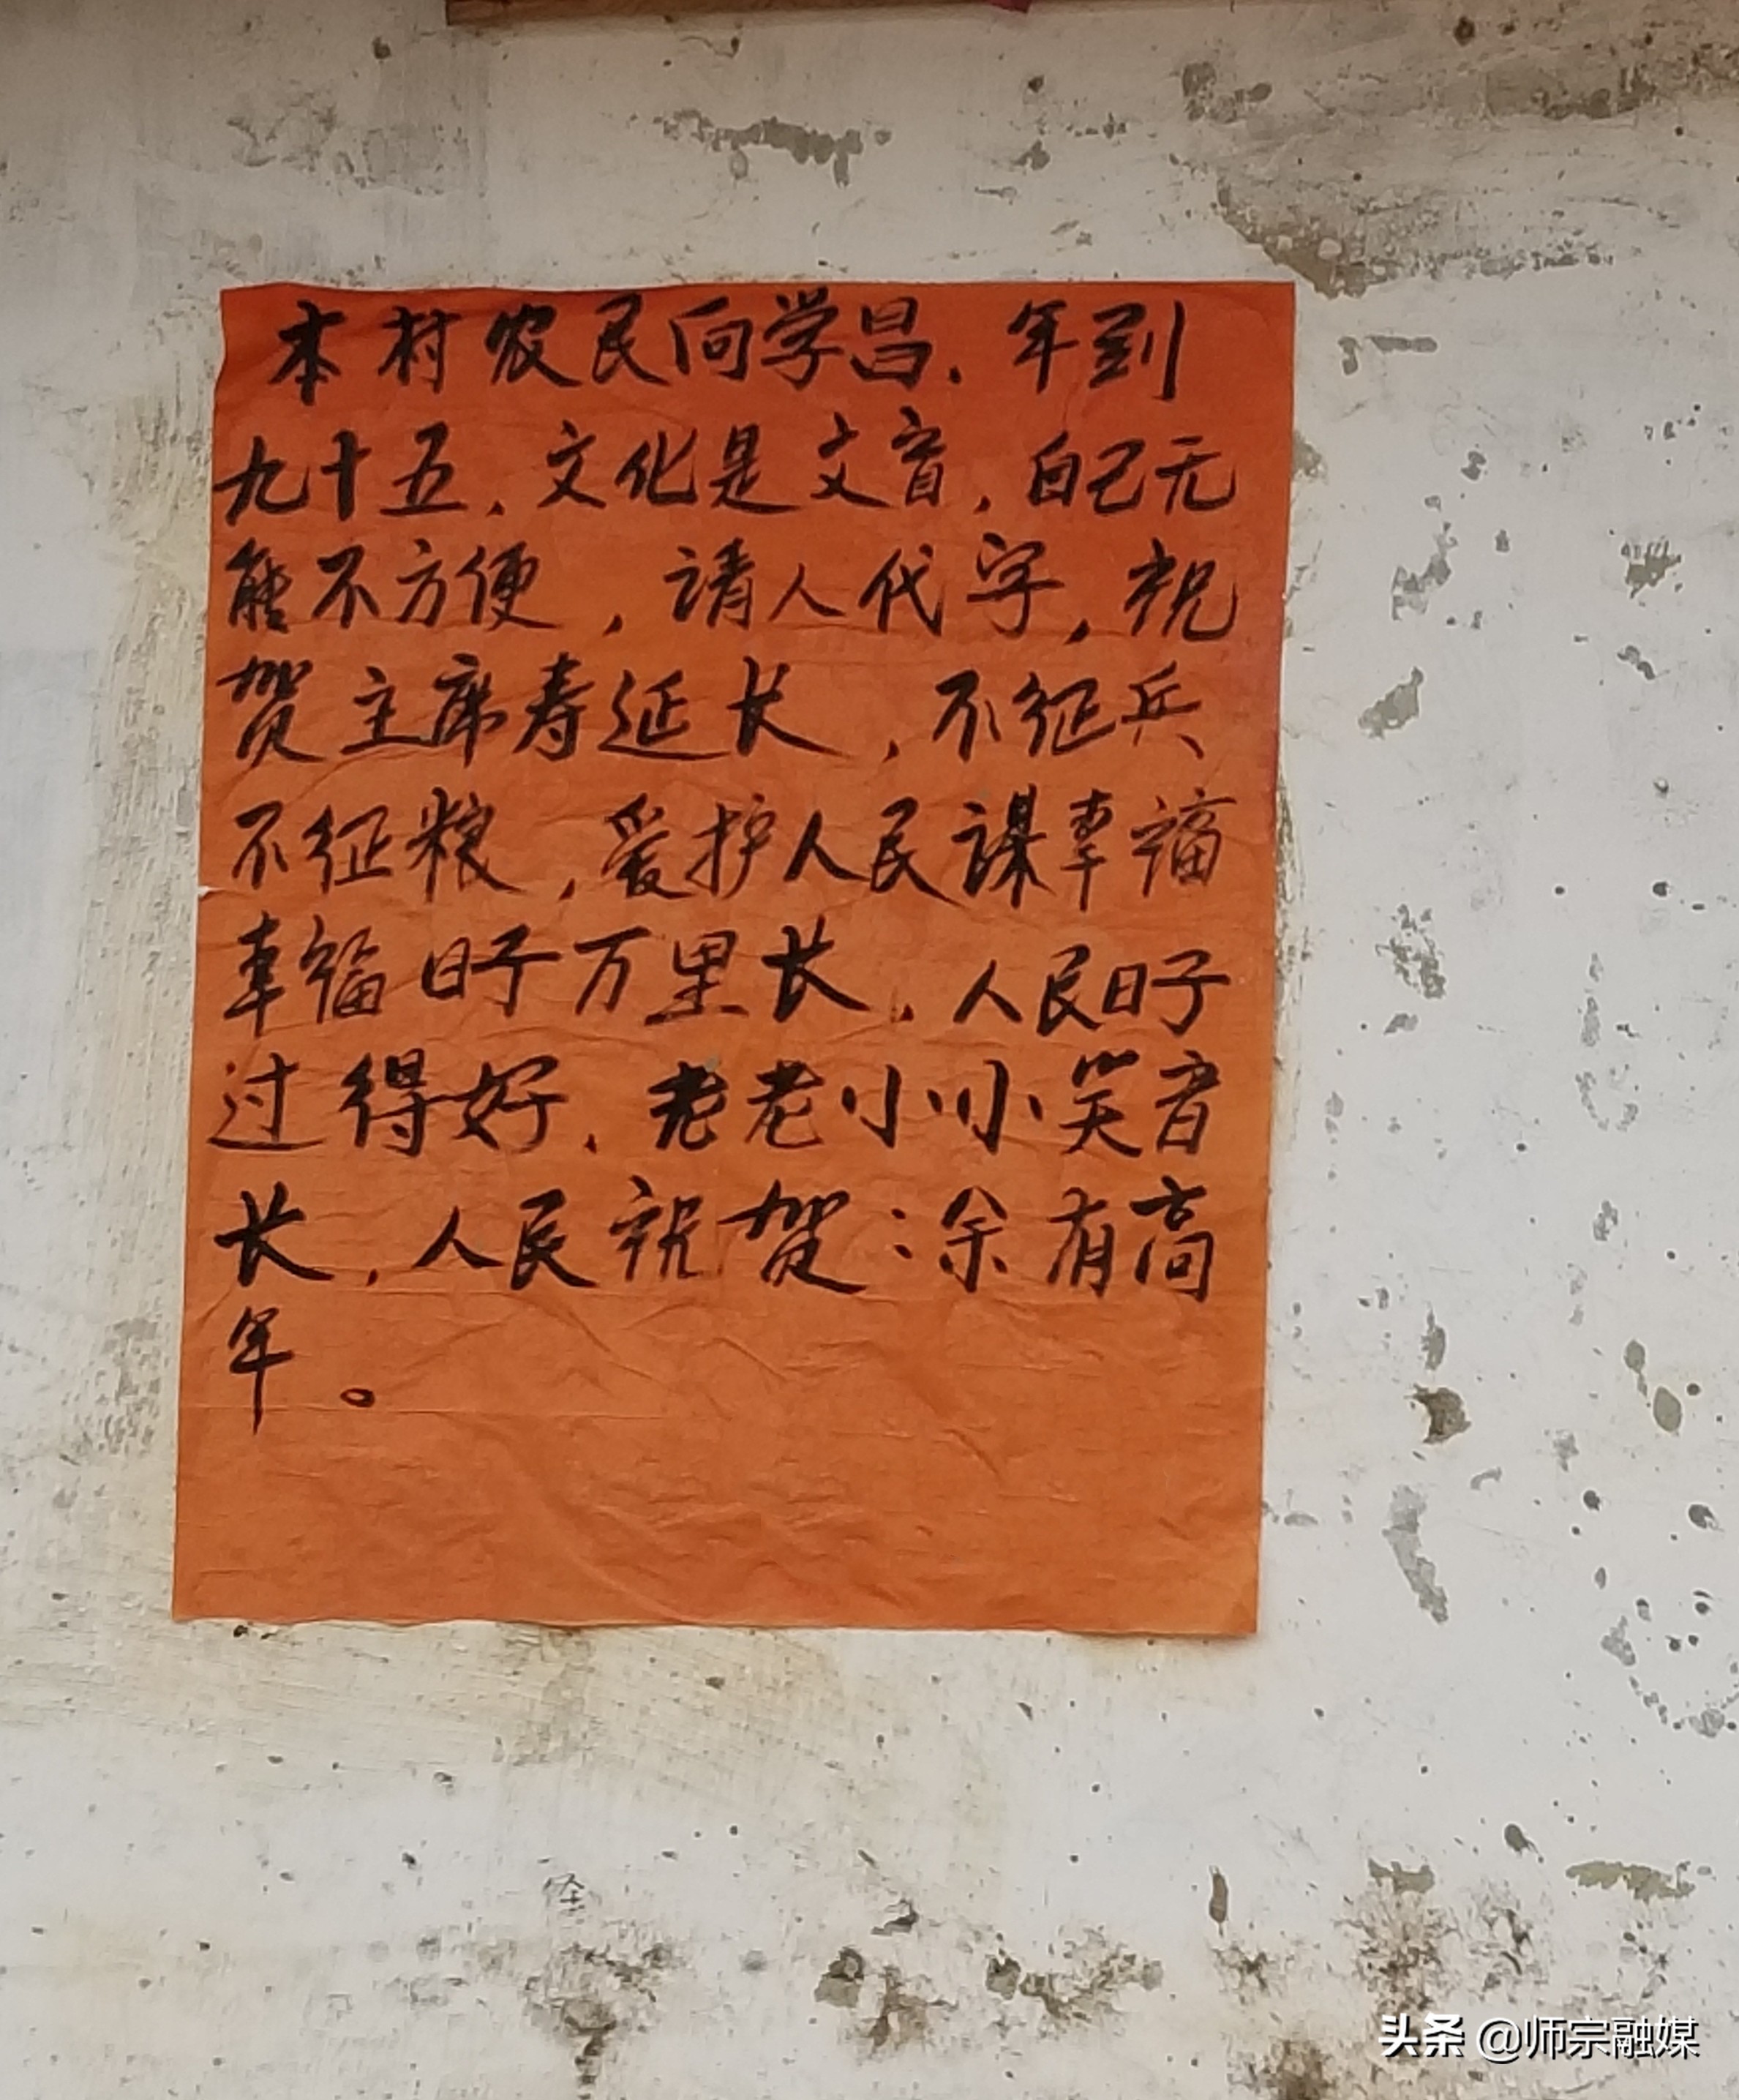 本村农民向学昌.年到
九十五,文化是文盲,自己无
能不方便,请人代字,祝
贺主席寿延长,不征兵
不征粮,爱护人民谋幸福
幸福日子万里长,人民日子
过得好.老老小小笑音
长,人民祝贺:余有高
年。
头条 @师宗融媒